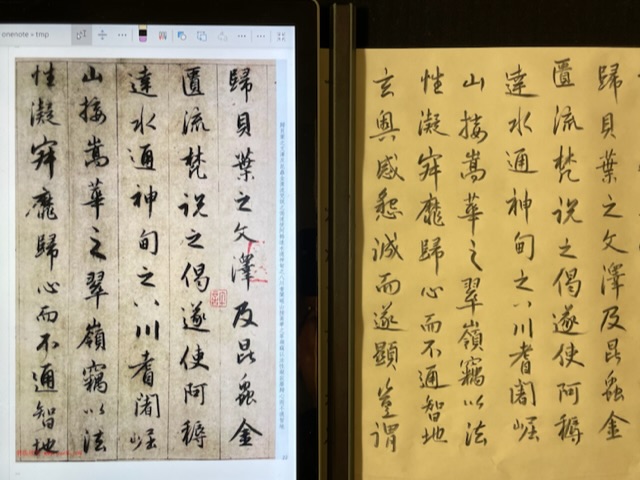 onenote » tmp
歸貝葉之文澤及昆蟲金
匱流梵說之偈遂使阿耨
達水通神甸之八川耆闍崛
山接嵩華之翠嶺竊以法
性凝寂靡歸心而不通智地
歸貝葉之文澤及昆蟲金
匱流梵說之偈遂使阿耨
達水通神甸之八川耆闍崛
山接嵩華之翠嶺竊以法
性凝寂靡歸心而不通智地
玄奧感懇誠而遂顯豈謂